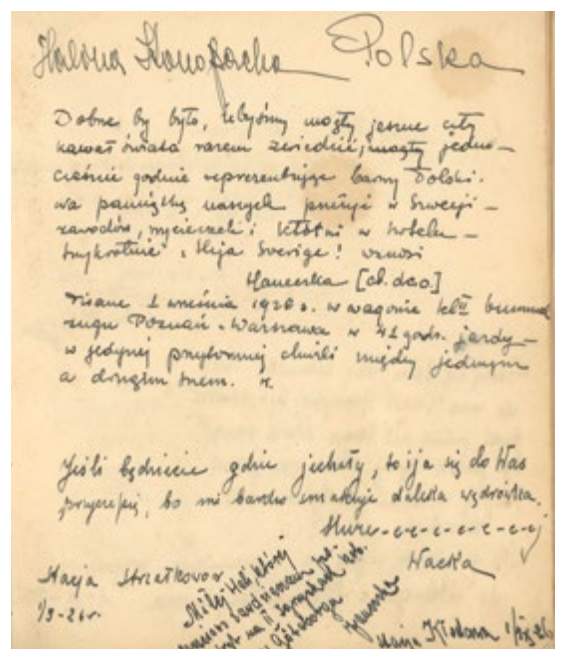 Halina Konopacka Polska
Dobrze by było, żebyśmy mogły jeszcze cały
kawał świata razem zwiedzić, mogły jedno-
cześnie godnie reprezentując barwy Polski.
Na pamiątkę naszych przeżyć w Szwecji –
zawodów, wycieczek i kłótni w hotelu –
trzykrotnie „Heja Sverige! wznosi
[cd. dco.]
Pisane 1 września 1926 r. w wagonie kl II
Poznań - Warszawa w 41 godz. jazdy –
w jedynej przytomnej chwili między jednym
a drugim snem.
Jeśli będziecie gdzie jechały, to i ja się do Was
przyczepię, bo mi bardzo smakuje daleka wędrówka.
Hurr-e-e-e-e-e-ej
Wacka
Stacja Strzałkowo
1/9-26 r.
Miłej Hali, której
na II Igrzyskach kob.
Göteborgu
Stacja Kłodawa 1/IX 26